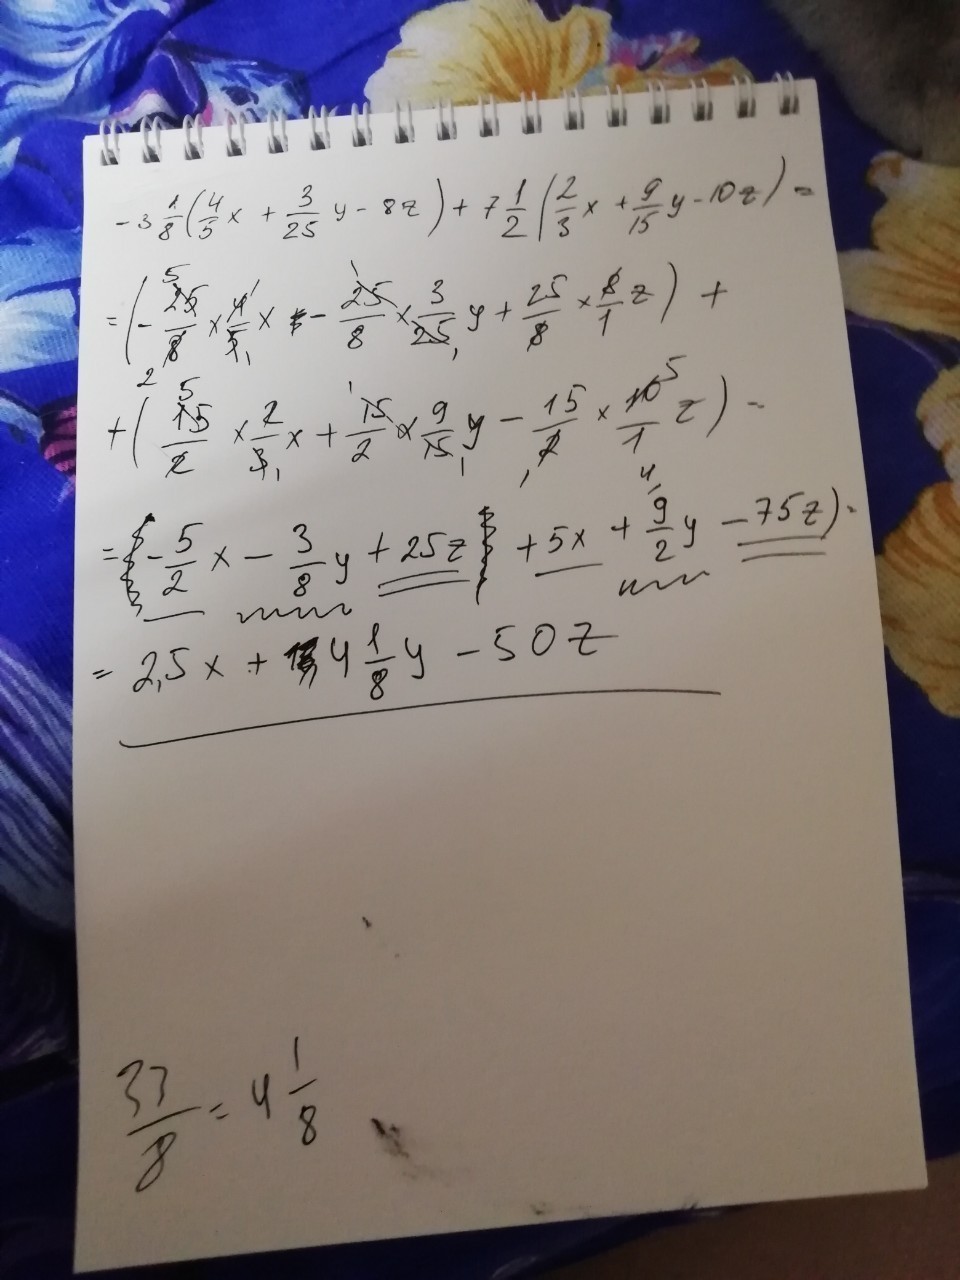 -3 1/8 (4/5 x + 3/25 y - 8z) + 7 1/2 (2/3 x + 9/15 y - 10z) =
= (- 25/8 × 4/5 x - 25/8 × 3/25 y + 25/8 × 8/1 z) +
+ (15/2 × 2/3 x + 15/2 × 9/15 y - 15/2 × 10/1 z) =
= - 5/2 x - 3/8 y + 25z + 5x + 9/2 y - 75z) =
= 2,5x + 4 1/8 y - 50z
33/8 = 4 1/8